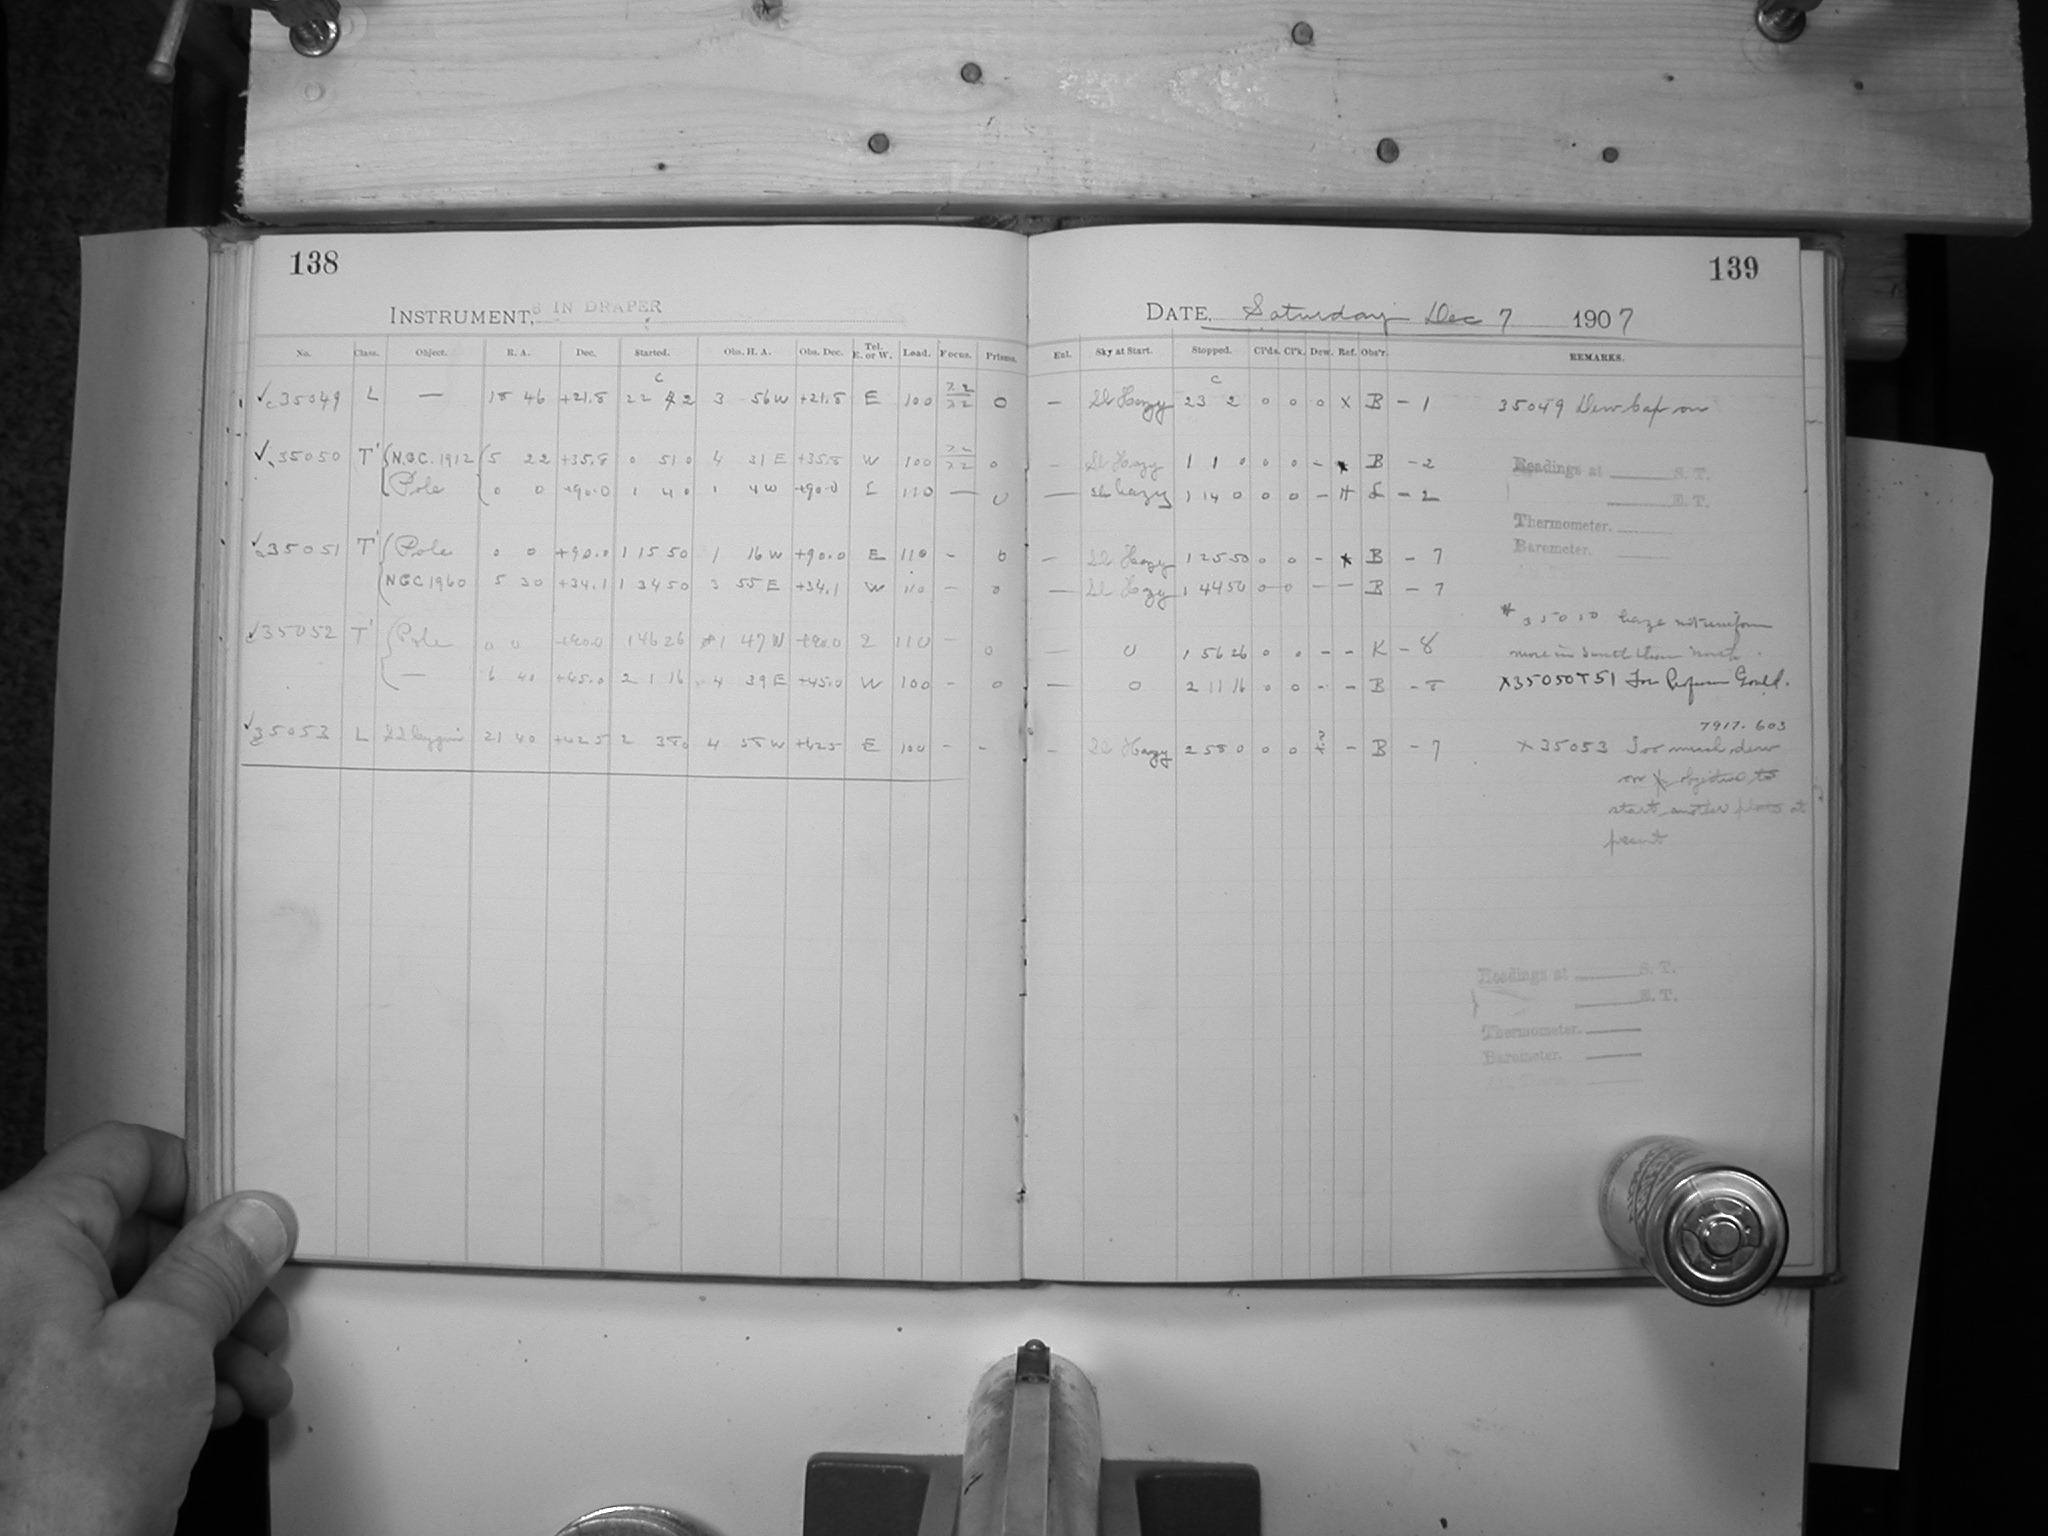 138
INSTRUMENT, 8 IN DRAPER
No. Class. Object. R. A. Dec. Started. Obs. H. A. Obs. Dec. Tel. E. or W. Load. Focus. Prisms.
35049 L — 18 46 +21.8 22 42 3 56 W +21.8 E 100 O
35050 T' N.G.C. 1912 5 22 +35.8 0 51 0 4 31 E +35.8 W 100 0
Pole 0 0 +90.0 1 4 0 1 4 W +90.0 E 110 — 0
35051 T' Pole 0 0 +90.0 1 15 50 1 16 W +90.0 E 110 - 0
NGC 1960 5 30 +34.1 1 34 50 3 55 E +34.1 W 110 - 0
35052 T' Pole 0 0 +90.0 1 46 26 1 47 W +90.0 E 110 - 0
— 6 41 +45.0 2 1 16 4 39 E +45.0 W 100 - 0
35053 L SS Cygni 21 40 +42.5 2 38 0 4 58 W +42.5 E 100 - -
139
DATE, Saturday Dec 7 1907
Enl. Sky at Start. Stopped. Cl'ds. Cl'k. Dew. Ref. Obs'r. REMARKS.
— Sl Hazy 23 2 0 0 0 X B - 1 35049 Dew Cap on
- Sl Hazy 1 1 0 0 0 - B - 2
— Sl hazy 1 14 0 0 0 - # - 2
— Sl Hazy 1 25 50 0 0 - B - 7
— Sl Hazy 1 44 50 0 0 - - B - 7
— 0 1 56 26 0 0 - - K - 8
— 0 2 11 16 0 0 - - B - 8
- Sl Hazy 2 58 0 0 0 - B - 7
Readings at S. T.
E. T.
Thermometer.
Barometer.
# 35050 haze not uniform
more in South than North.
X 35050 + 51 For Professor Gould.
7917. 603
X 35053 Too much dew
on objective to
start another plate at
present
Readings at S. T.
E. T.
Thermometer.
Barometer.